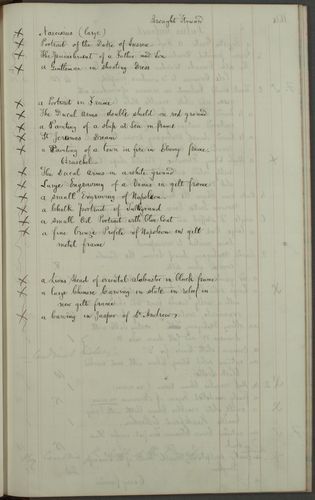 Brought Forward
x Narcissus (large)
x Portrait of the Duke of Sussex
x The of a Father and Son
x a Gentleman in Shooting Dress
x a Portrait in Frame
x The Ducal Arms double shield on red ground
x a Painting of a ship at Sea in frame
x St Jeromes Dream
x a Painting of a town on fire in Ebony frame
Brueghel
x The Ducal Arms on a white ground
x Large Engraving of a Venus in gilt frame
x a small Engraving of Napoleon
x a Chalk Portrait of
x a small Oil Portrait with Blue Coat
x a fine Bronze Profile of Napoleon in gilt
metal frame
x a Lions Head of oriental alabaster in black frame
x a large Chinese Carving in slate in relief in
new gilt frame
x a Carving in Jasper of St Andrew